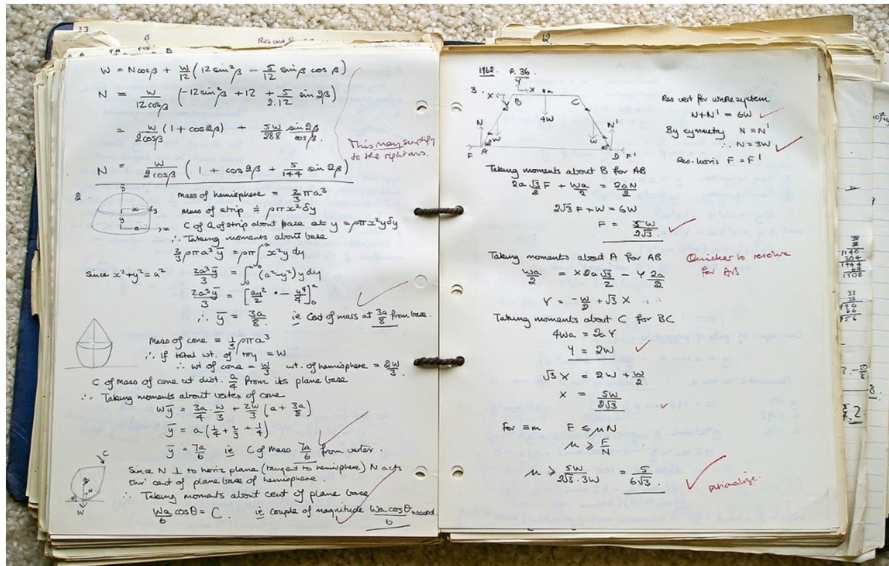 W = N cosβ + W/12 (12 sin²β - 5/12 sinβ cosβ)
N = W/12cosβ (-12 sin²β + 12 + 5/2.12 sin 2β)
= W/2cosβ (1 + cos2β) + 5W/288 sin 2β/cosβ
This may simplify
to the right ans.
N = W/2cosβ (1 + cos2β + 5/144 sin 2β)
2
Mass of hemisphere = 2/3 πρa³
Mass of strip ≑ ρπx²δy
C of G of strip about base at y = ρπx²yδy
∴ Taking moments about base
2/3 ρπa³ȳ = ρπ∫ x²y dy
Since x²+y² = a² 2a³ȳ/3 = ∫ (a²-y²)y dy
2a³ȳ/3 = [a²y²/2 - y⁴/4]
∴ ȳ = 3a/8 ie Cent of mass at 3a/8 from base.
Mass of cone = 1/3 ρπa³
∴ if total wt. of toy = W
∴ wt of cone = W/3 wt. of hemisphere = 2W/3
C of Mass of cone at dist. a/4 from its plane base
∴ Taking moments about vertex of cone
Wȳ = 3a/4 · W/3 + 2W/3 (a + 3a/8)
ȳ = a(1/4 + 2/3 + 1/4)
ȳ = 7a/6 ie C of mass 7a/6 from vertex.
C
W
Since N ⊥ to horiz plane (tangent to hemisphere) N acts
thro' cent of plane base of hemisphere.
∴ Taking moments about cent of plane base
Wa/6 cosθ = C. ie couple of magnitude Wa cosθ/6 needed.
12
1962 F. 36
3.
X
Y
B
C
4W
N
N'
F
A
D
F'
Res vert for whole system
N + N' = 6W
By symmetry N = N'
∴ N = 3W
Res. horiz F = F'
Taking moments about B for AB
2a √3/2 F + Wa/2 = 2aN/2
2√3 F + W = 6W
F = 5W/2√3
Taking moments about A for AB
Quicker to resolve
for AB
Wa/2 = X 2a √3/2 - Y 2a/2
Y = -W/2 + √3 X
Taking moments about C for BC
4Wa = 2aY
Y = 2W
√3 X = 2W + W/2
X = 5W/2√3
For ≡m F ≤ μN
μ ≥ F/N
μ ≥ 5W/2√3·3W = 5/6√3
rationalise.